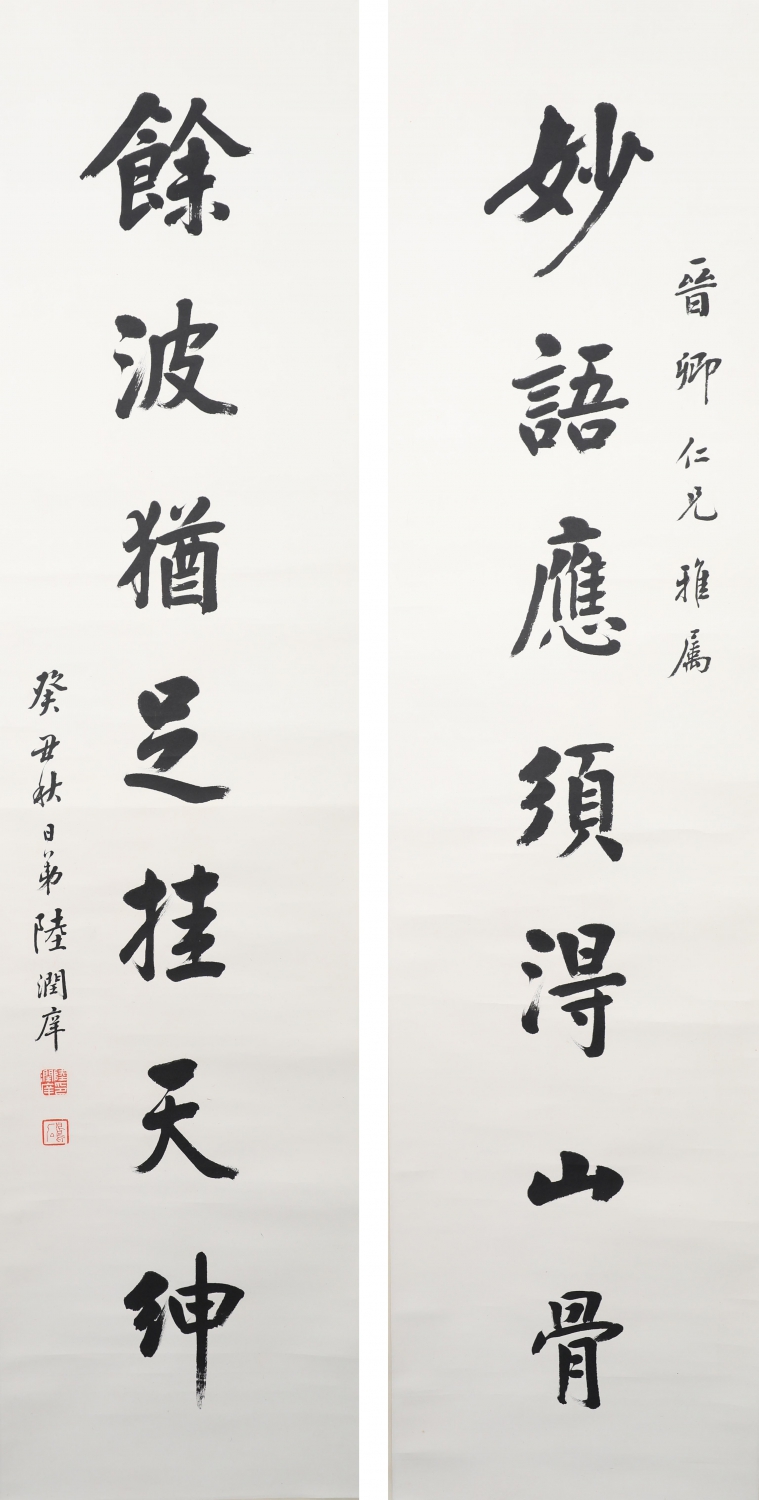 晉卿仁兄雅属
妙語應須得山骨
餘波猶足挂天紳
癸丑秋日弟陸潤庠
陸印潤庠